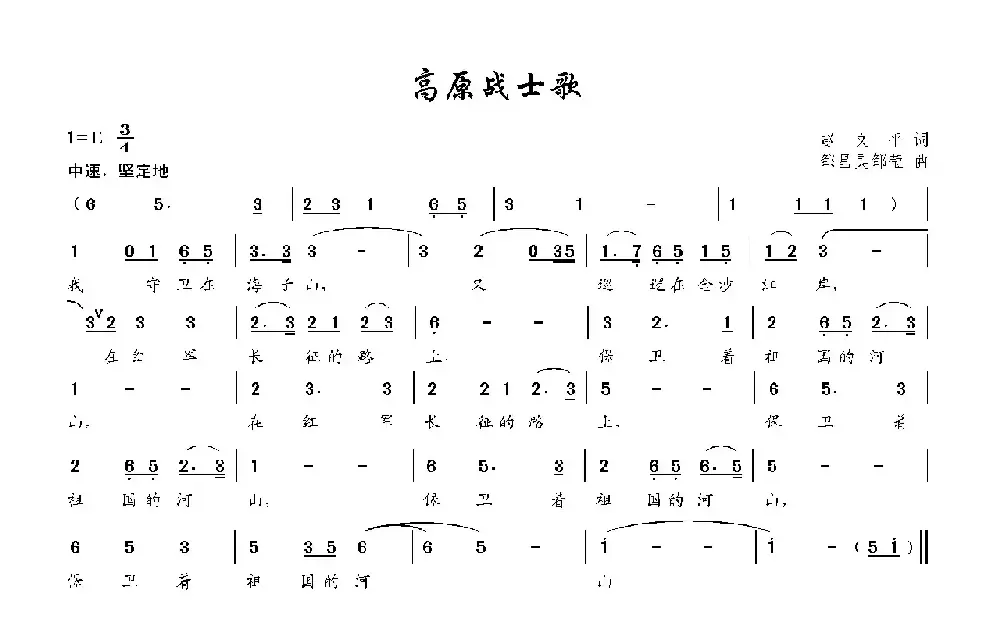 高原战士歌
1=E 3/4
中速，坚定地 词
曲
( 6 5. 3 | 2 3 1 6 5 | 3 1 - | 1 1 1 1 ) |
1 0 1 6 5 | 3. 3 3 - | 3 2 0 35 | 1. 7 6 5 1 5 | 1 2 3 - |
我 守卫在 海子山， 又 巡 逻在金沙 江 岸，
3 V 2 3 3 | 2. 3 2 1 2 3 | 6 - - | 3 2. 1 | 2 6 5 2. 3 |
在红 军 长 征的路 上， 保 卫 着 祖 国的河
1 - - | 2 3. 3 | 2 2 1 2. 3 | 5 - - | 6 5. 3 |
山， 在 红 军 长 征的路 上， 保 卫 着
2 6 5 2. 3 | 1 - - | 6 5. 3 | 2 6 5 6. 5 | 5 - - |
祖 国的河 山， 保 卫 着 祖 国的河 山，
6 5 3 | 5 3 5 6 | 6 5 - | i - - | i - ( 5 i ) ‖
保 卫 着 祖 国的河 山